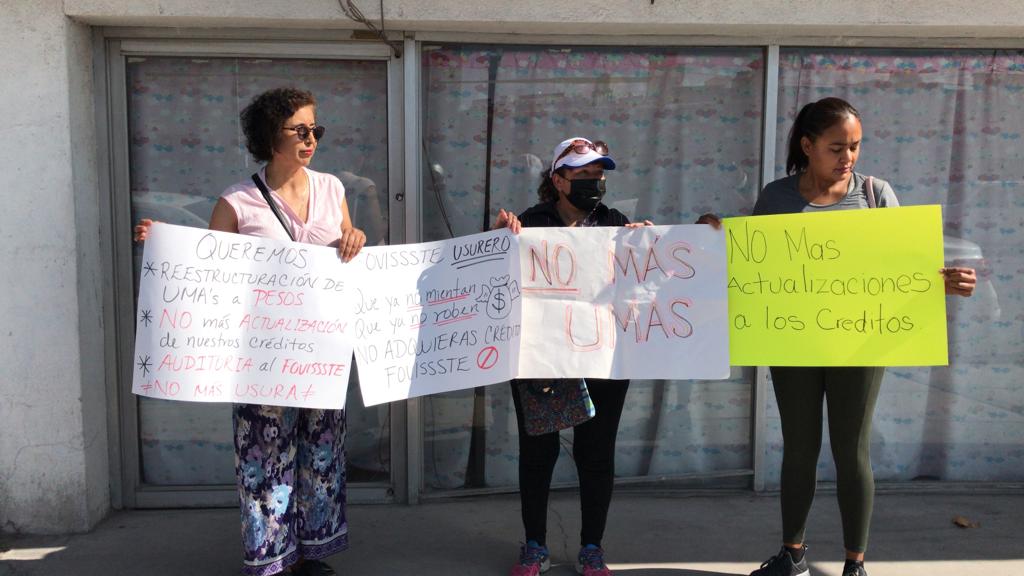 QUEREMOS
* REESTRUCTURACIÓN DE
UMA's a PESOS
* NO más ACTUALIZACIÓN
de nuestros créditos
* AUDITORIA al FOVISSSTE
≠NO MÁS USURA≠
OVISSSTE USURERO
Que ya no mientan
Que ya no roben $
NO ADQUIERAS CRÉDITO
FOVISSSTE
NO MÁS
UMAS
NO Mas
Actualizaciones
a los Creditos.